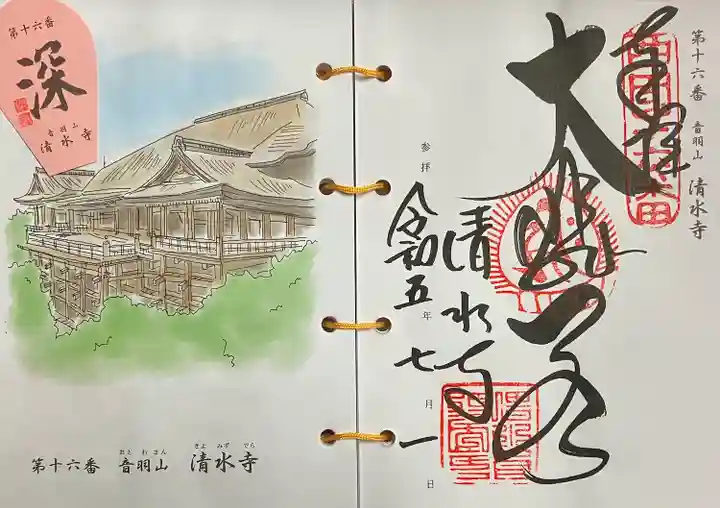 第十六番
深
音羽山
清水寺
おと わ さん
きよ みず でら
第十六番 音羽山 清水寺
第十六番 音羽山 清水寺
奉拝
大悲閣
清水寺
参拝
令和五年七月一日